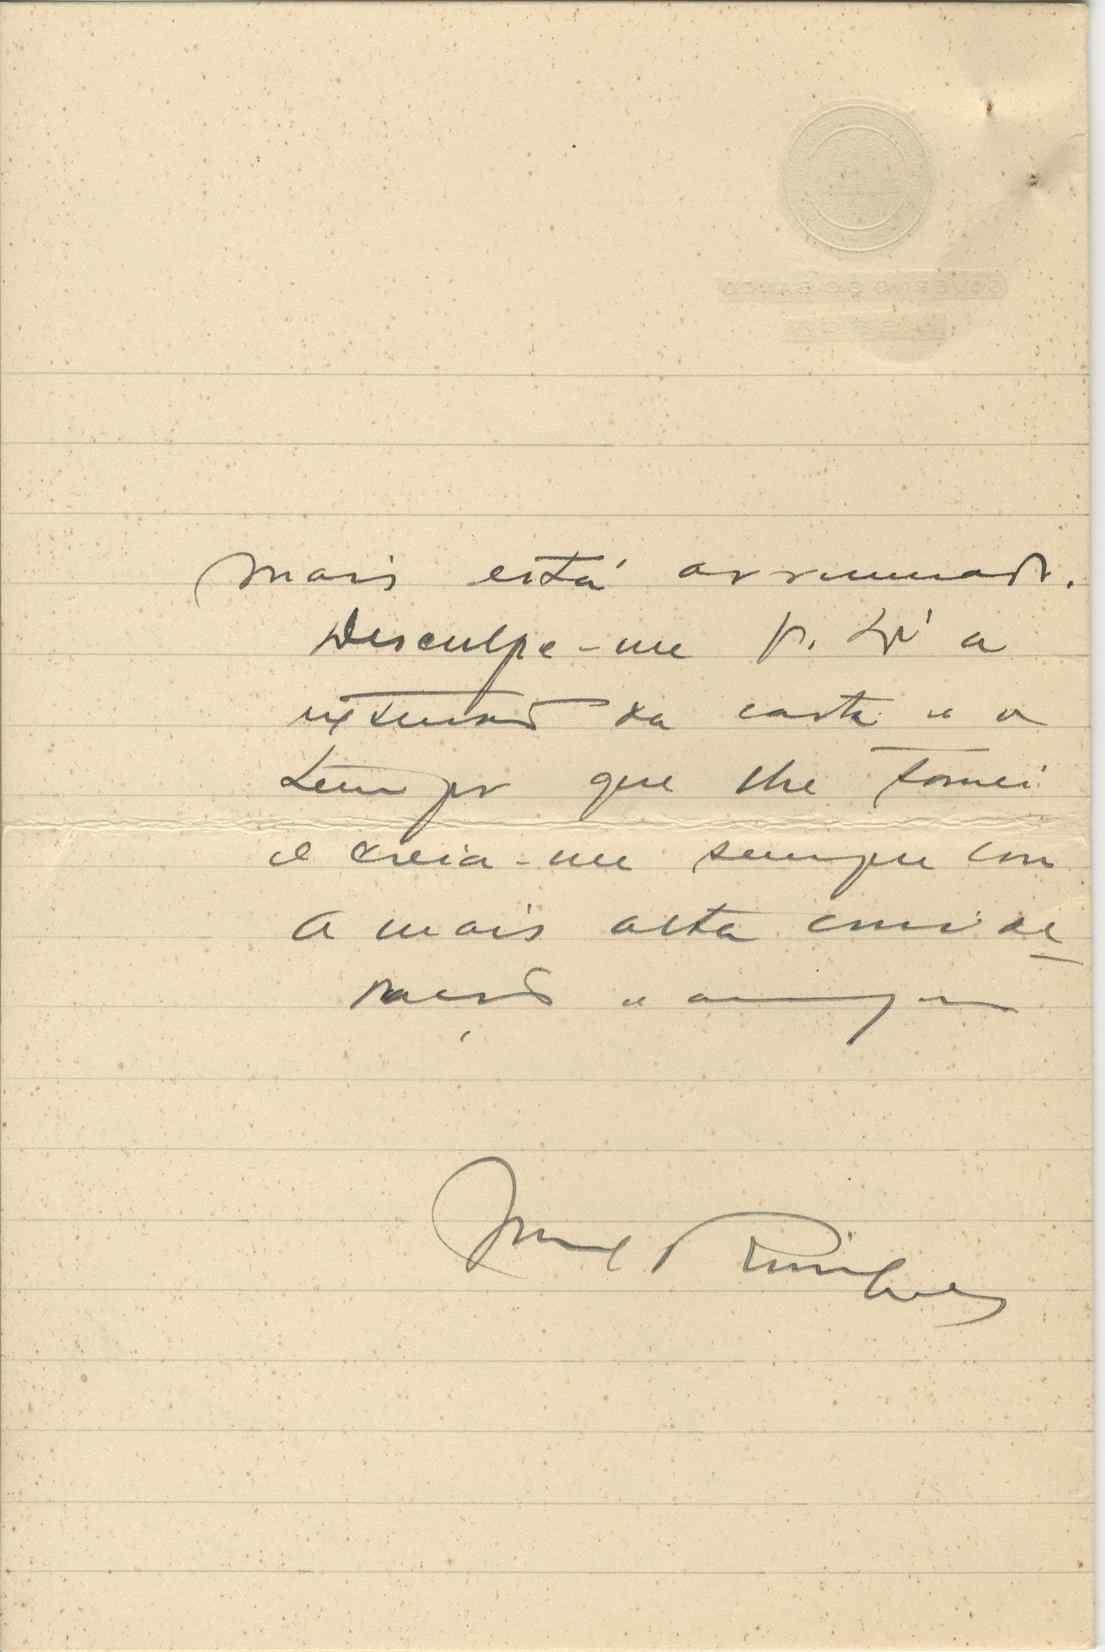 mais está arrumado.
Desculpe-me V. Exª a
extensão da carta e o
tempo que lhe tomei
e creia-me sempre com
a mais alta conside
ração e